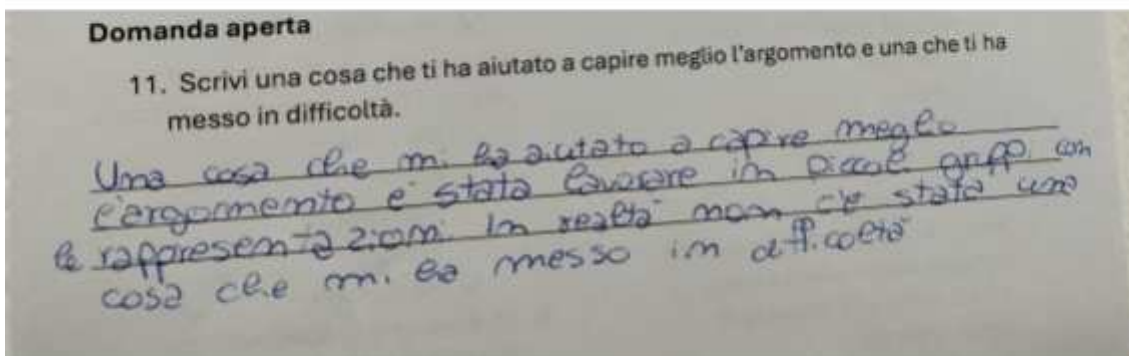 Domanda aperta
11. Scrivi una cosa che ti ha aiutato a capire meglio l'argomento e una che ti ha
messo in difficoltà.
Una cosa che mi ha aiutato a capire meglio
l'argomento è stata lavorare in piccoli gruppi con
le rappresentazioni. In realtà non c'è stata una
cosa che mi ha messo in difficoltà